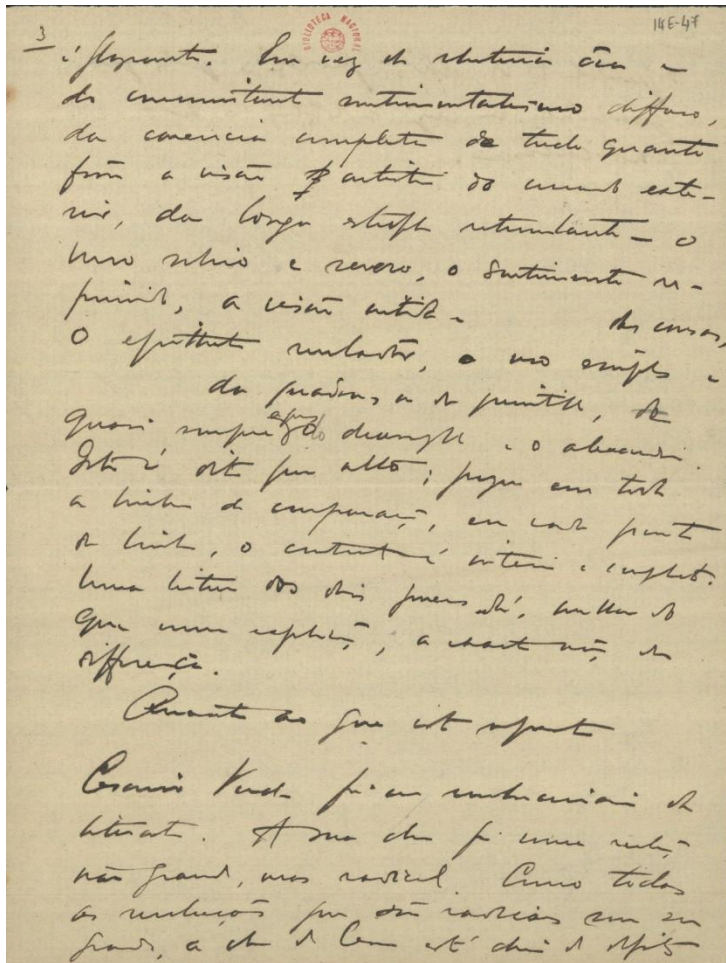 3
BIBLIOTECA NACIONAL
14E-47
é flagrante. Em vez da rhetorica ôca e
do concomitante sentimentalismo diffuso,
da carencia completa de tudo quanto
fosse a visão artistica do mundo exte-
rior, da longa estrophe retumbante — o
verso sobrio e severo, o sentimento re-
primido, a visão nitida das cousas,
o epitheto revelador, o uso simples e
da quadra, ou da quintilha,
quasi sempre o decasyllabo e o alexandrino.
Isto é dito por alto; porque em toda
a linha de comparação, em cada ponto
da linha, o contraste é inteiro e completo.
Uma leitura dos dois poemas dá, melhor do
que uma explicação, a exacta noção da
differença.
Quanto ao que
Cesario Verde foi um revolucionario da
literatura. A sua obra foi uma revolução
não grande, mas radical. Como todas
as revoluções que são radicaes sem ser
grandes, a obra de Cesario está cheia de defeitos